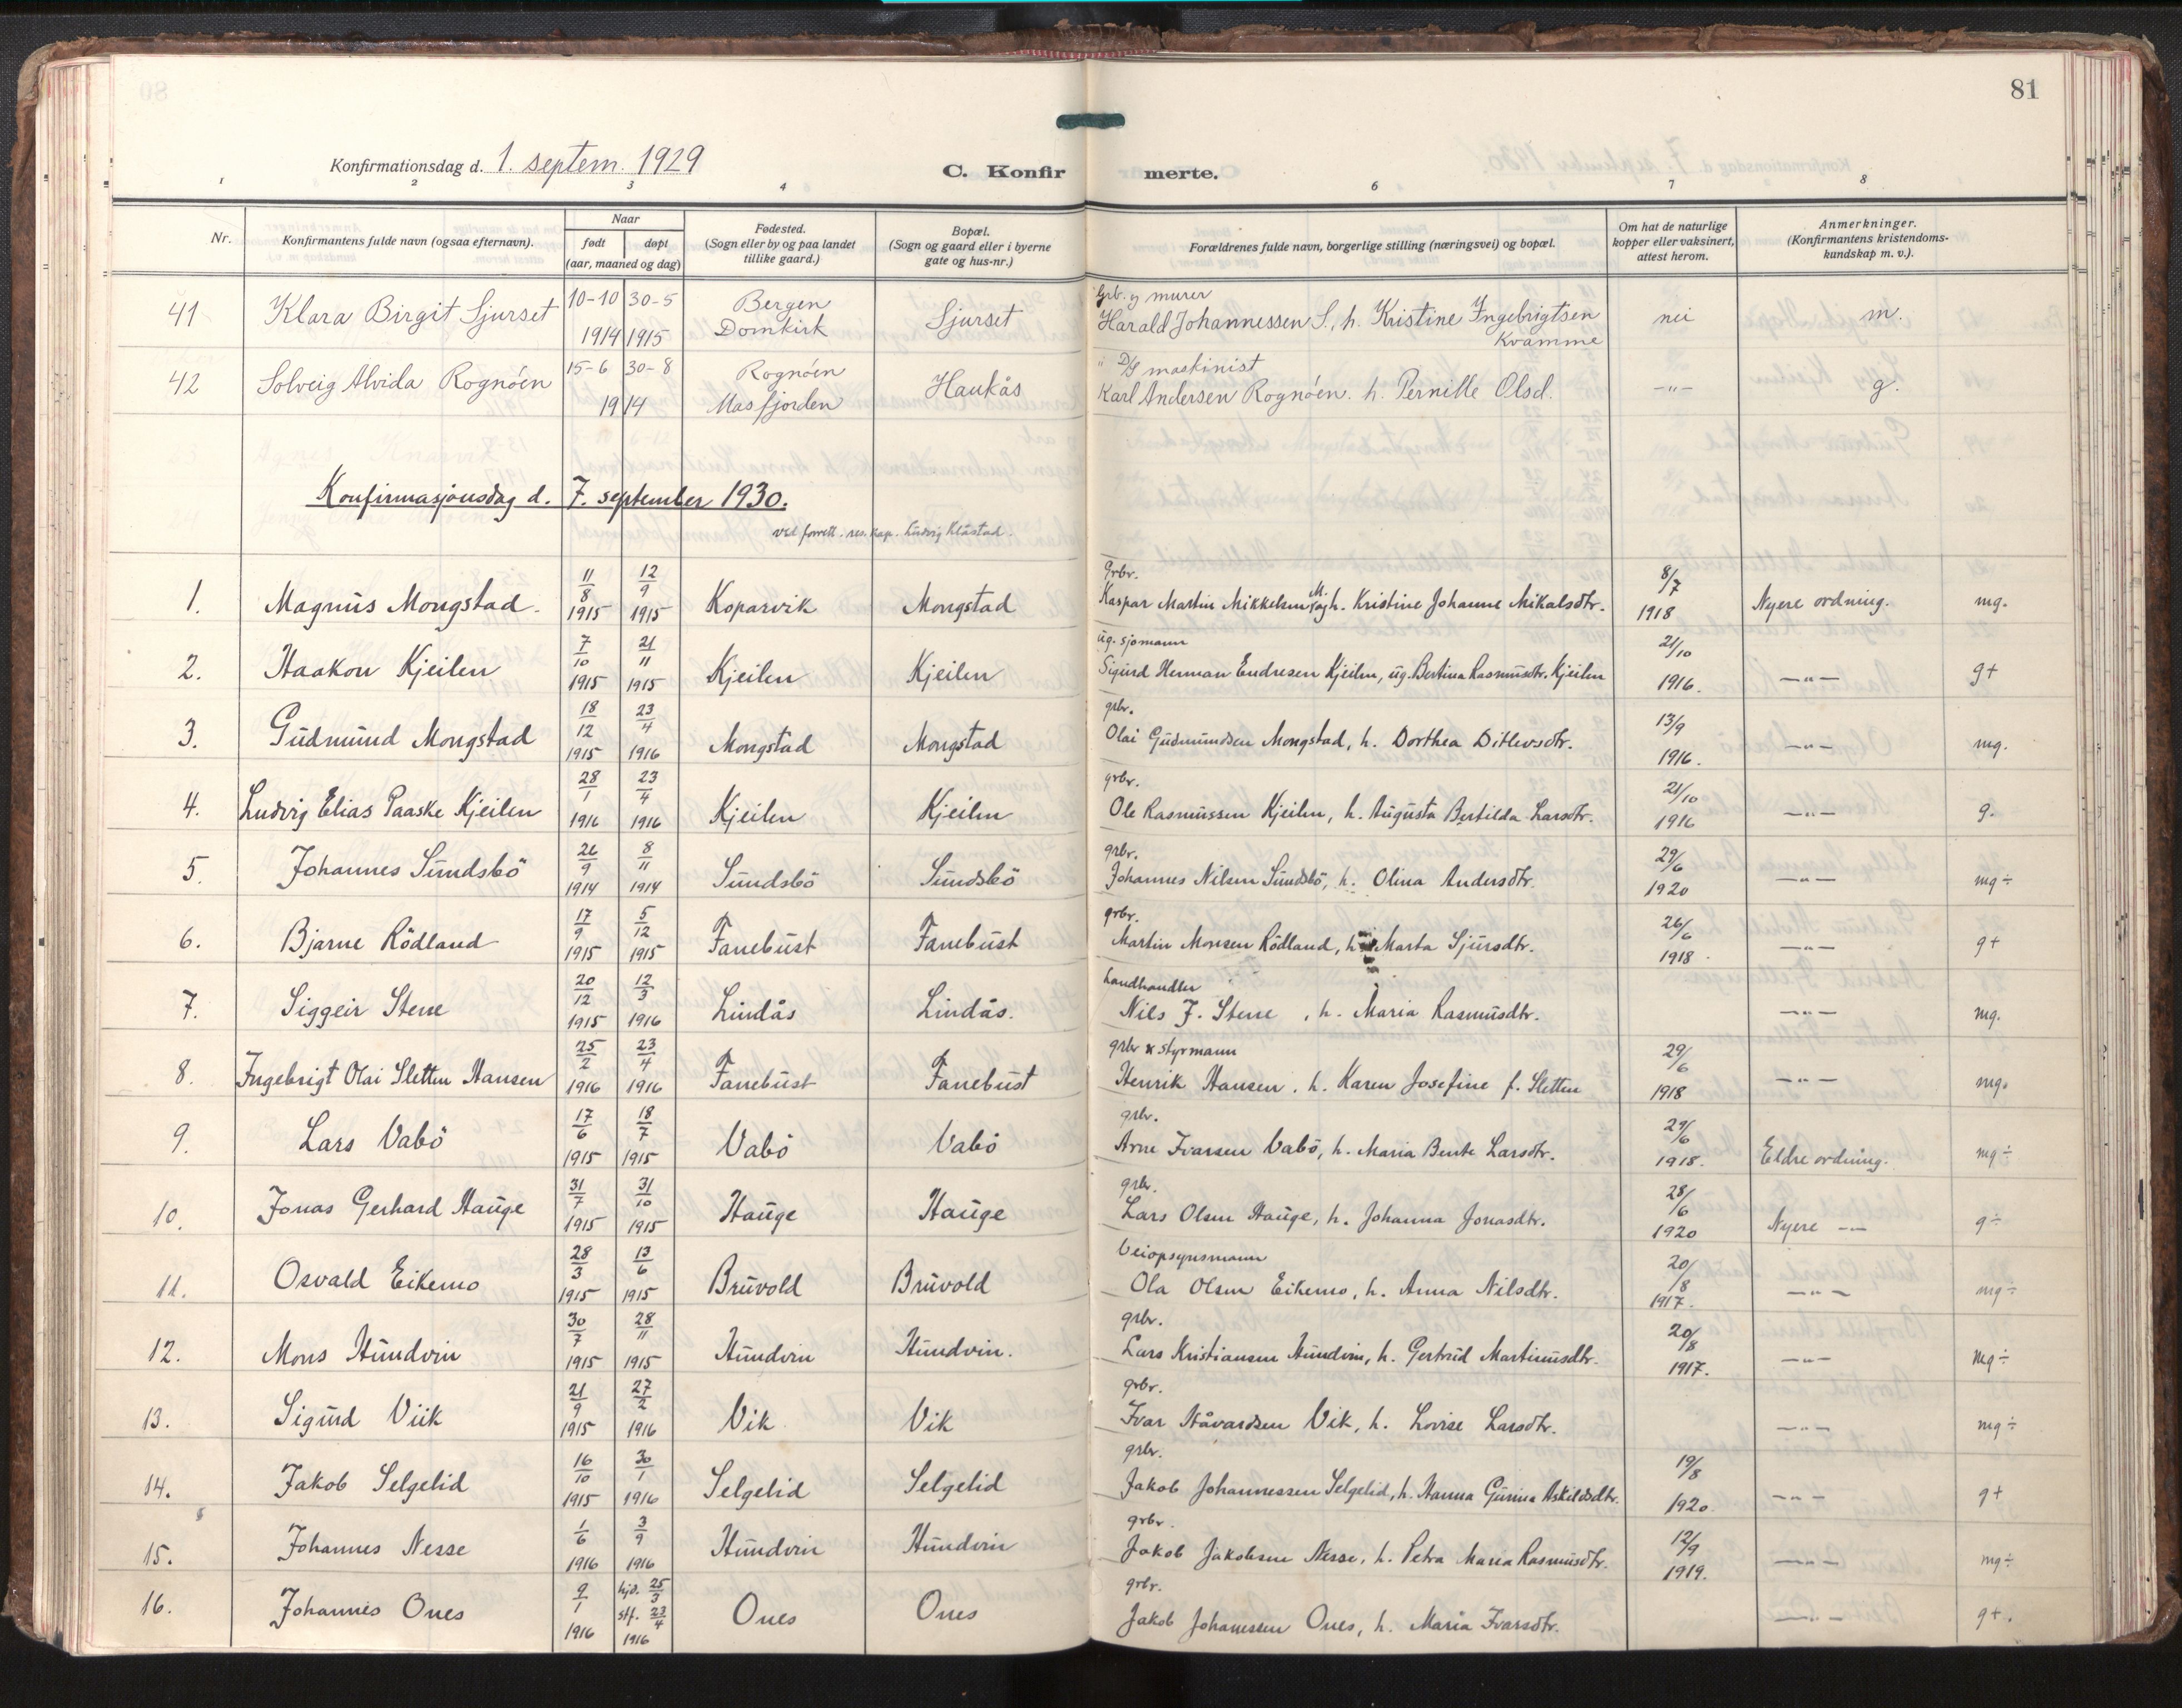 81
Konfirmationsdag d. 1. septem. 1929
C. Konfirmerte.
1 2 3 4 5 6 7 8
Nr. | Konfirmantens fulde navn (ogsaa efternavn). | Naar født døpt (aar, maaned og dag) | Fødested. (Sogn eller by og paa landet tillike gaard.) | Bopæl. (Sogn og gaard eller i byerne gate og hus-nr.) | Forældrenes fulde navn, borgerlige stilling (næringsvei) og bopæl. | Om hat de naturlige kopper eller vaksinert, attest herom. | Anmerkninger. (Konfirmantens kristendomskundskap m. v.).
41 Klara Birgit Sjurset 10-10 1914 30-5 1915 Bergen Domkirk Sjurset Grb. og murer Harald Johannessen S., h. Kristine Ingebrigtsen Kvamme nei m.
42 Solveig Alvida Rognöen 15-6 30-8 1914 Rognöen Masfjorden Haukås " D/S maskinist Karl Andersen Rognöen. h. Pernille Olsd. -"- g.
Konfirmasjonsdag d. 7. september 1930.
ved forrett. res. kap. Ludvig Klåstad.
1. Magnus Mongstad. 11/8 1915 12/9 1915 Koparvik Mongstad Grbr. Kaspar Martin Mikkelsen M. og h. Kristine Johanne Mikalsdtr. 8/7 1918 Nyere ordning. mg.
2. Haakon Kjeilen 7/10 1915 21/11 1915 Kjeilen Kjeilen ug. sjømann Sigurd Herman Endresen Kjeilen, ug. Bertina Rasmusdtr. Kjeilen 21/10 1916. -"- g+
3. Gudmund Mongstad 18/12 1915 23/4 1916 Mongstad Mongstad grbr. Olai Gudmundsen Mongstad, h. Dorthea Ditlevsdtr. 13/9 1916. -"- mg.
4. Ludvig Elias Paaske Kjeilen 28/1 1916 23/4 1916 Kjeilen Kjeilen grbr. Ole Rasmussen Kjeilen, h. Augusta Bertilda Larsdtr. 21/10 1916 -"- g.
5. Johannes Sundsbö 26/9 1914 8/11 1914 Sundsbö Sundsbö grbr. Johannes Nilsen Sundsbö, h. Olina Andersdtr. 29/6 1920 -"- mg÷
6. Bjarne Rödland 17/9 1915 5/12 1915 Fanebust Fanebust grbr. Martin Monsen Rödland, h. Marta Sjursdtr. 26/6 1918 -"- g+
7. Siggeir Stene 20/12 1915 12/3 1916 Lindås Lindås. Landhandler Nils J. Stene, h. Maria Rasmusdtr. -"- mg.
8. Ingebrigt Olai Sletten Hansen 25/2 1916 23/4 1916 Fanebust Fanebust grbr & styrmann Henrik Hansen. h. Karen Josefine f. Sletten 29/6 1918 -"- mg.
9. Lars Vabö 17/6 1915 18/7 1915 Vabö Vabö grbr. Arne Ivarsen Vabö, h. Maria Bente Larsdtr. 29/6 1918. Eldre ordning. mg÷
10. Jonas Gerhard Hauge 31/7 1915 31/10 1915 Hauge Hauge grbr. Lars Olsen Hauge, h. Johanna Jonasdtr. 28/6 1920 Nyere -- g÷
11. Osvald Eikemo 28/3 1915 13/6 1915 Bruvold Bruvold Veiopsynsmann Ola Olsen Eikemo, h. Anna Nilsdtr. 20/8 1917. -"- mg÷
12. Mons Hundvin 30/7 1915 28/11 1915 Hundvin Hundvin. grbr. Lars Kristiansen Hundvin, h. Gertrud Martinusdtr. 20/8 1917. -"- mg÷
13. Sigurd Viik 21/9 1915 27/2 1916 Vik Vik grbr. Ivar Håvardsen Vik, h. Lovise Larsdtr. -"- mg÷
14. Jakob Selgelid 16/10 1915 30/1 1916 Selgelid Selgelid grbr. Jakob Johannessen Selgelid, h. Hanna Gurina Askildsdtr. 19/8 1920. -"- g+
15. Johannes Nesse 1/6 1916 3/9 1916 Hundvin Hundvin grbr. Jakob Jakobsen Nesse, h. Petra Maria Rasmusdtr. 12/9 1919. -"- mg÷
16. Johannes Ones 9/1 1916 hjd. 25/3 stf. 23/4 1916 Ones Ones grbr. Jakob Johannessen Ones, h. Maria Ivarsdtr. -"- g+.